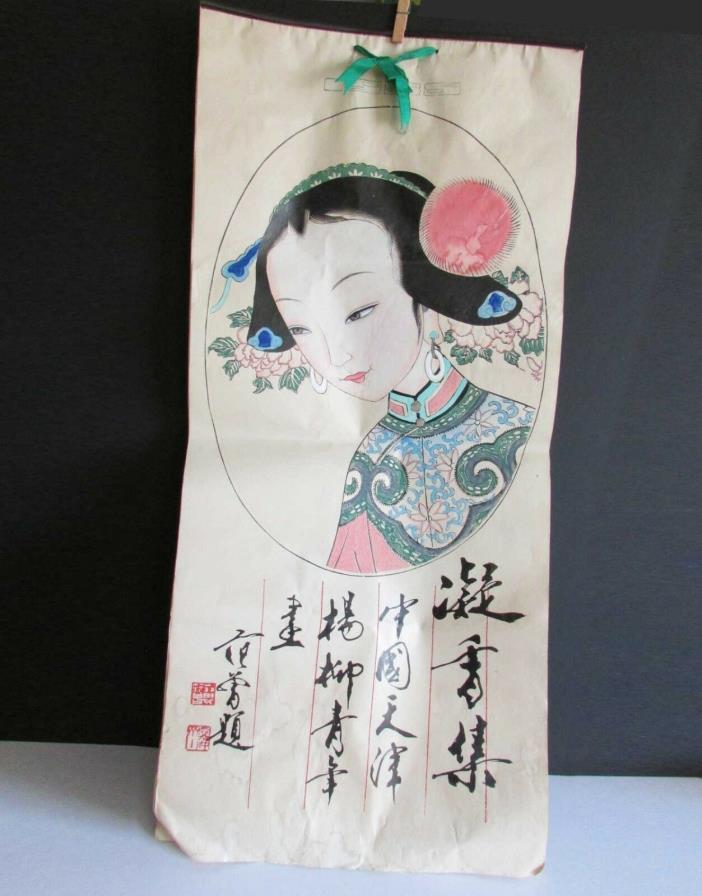 凝香集
中國天津
楊柳青年
畫
范曾題